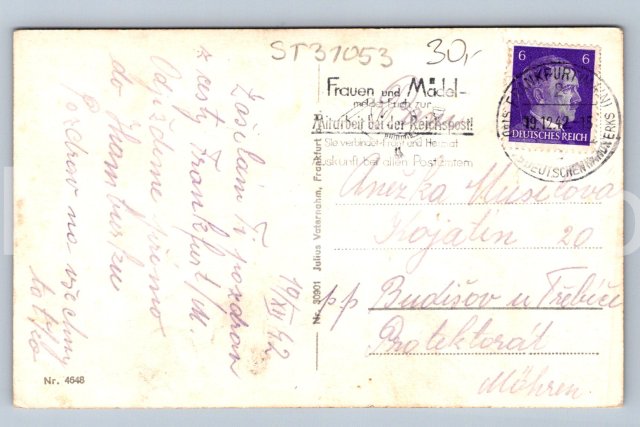 ST31053
30,-
Frauen und Mädel-
meldet Euch zur
Mitarbeit bei der Reichspost!
Sie verbindet Front und Heimat
Auskunft bei allen Postämtern
6 6
DEUTSCHES REICH
19.12.42-15
DEUTSCHEN HANDWERKS
19/XII 42
Zasílám Ti pozdrav
z cesty Frankfurt/M.
Odjíždíme přímo
do Hamburku
pozdrav na všechny
Anežka Musilova
Kojatin 20
pp Budišov u Třebíče
Protektorát
Möhren.
Nr. 30901 Julius Vaternahm, Frankfurt
Nr. 4648